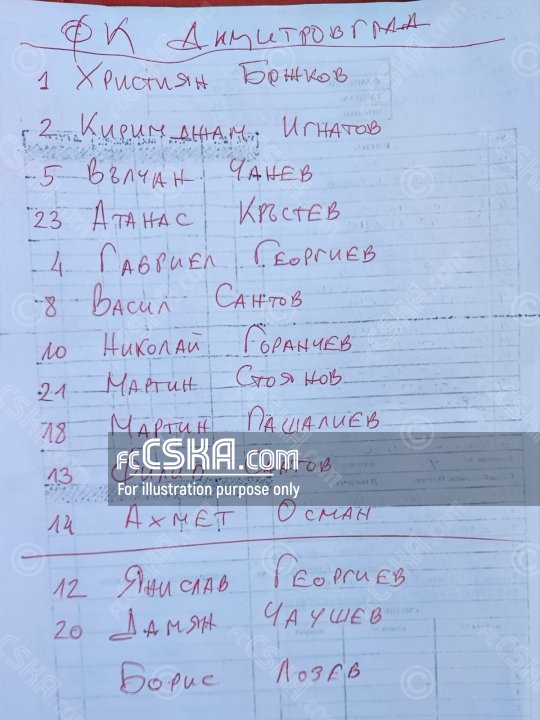 ФК Димитровград
1 Християн Божков
2 Киримджам Игнатов
5 Вълчан Чанев
23 Атанас Кръстев
4 Габриел Георгиев
8 Васил Сантов
10 Николай Горанчев
21 Мартин Стоянов
18 Мартин Пашалиев
fcCSKA.com
13 Филип Сантов
For illustration purpose only
14 Ахмет Осман
12 Янислав Георгиев
20 Дамян Чаушев
Борис Лозев